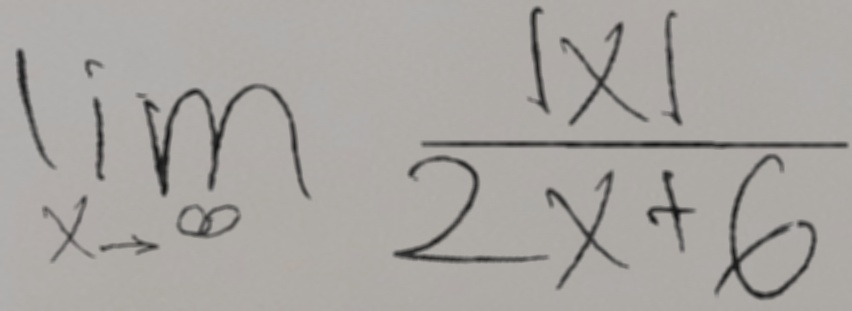 lim |x|
x→∞ 2x+6